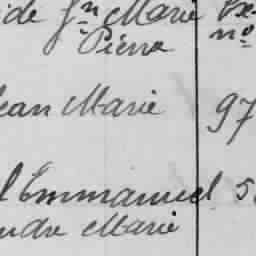 de Jn Marie
Pierre nº
Jean Marie 97
Emmanuel 5
Marie